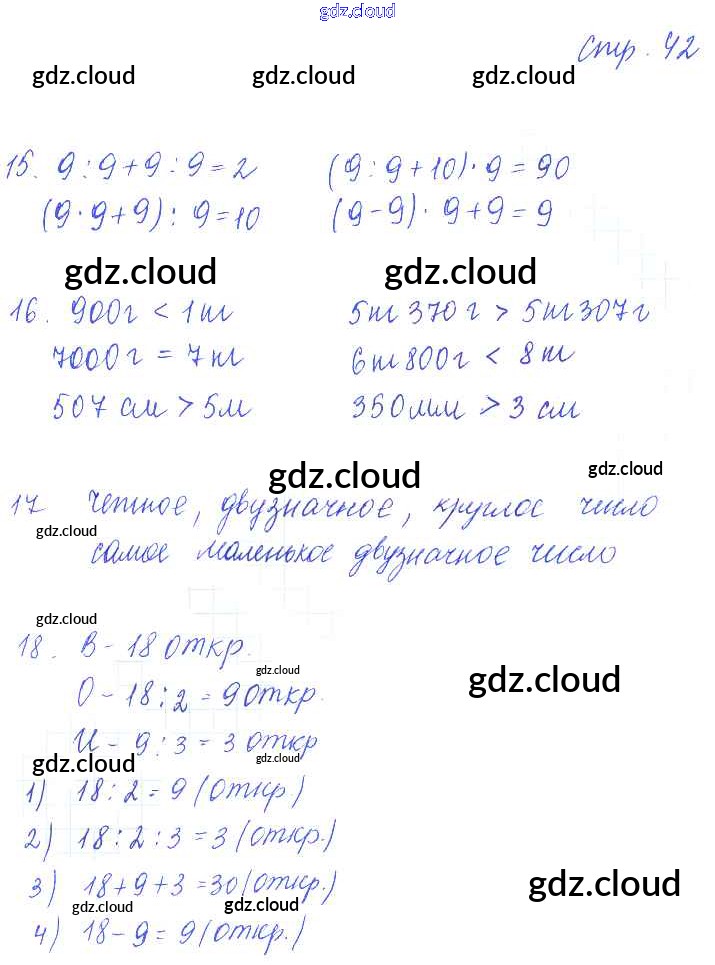 gdz.cloud
стр. 42
gdz.cloud gdz.cloud gdz.cloud
15. 9 : 9 + 9 : 9 = 2 (9 : 9 + 10) · 9 = 90
(9 · 9 + 9) : 9 = 10 (9 - 9) · 9 + 9 = 9
gdz.cloud gdz.cloud
16. 900 г < 1 т 5 т 370 г > 5 т 307 г
7000 г = 7 т 6 т 800 г < 8 т
507 см > 5 м 350 мм > 3 см
gdz.cloud gdz.cloud
17 Четное, двузначное, круглое число
gdz.cloud
самое маленькое двузначное число
gdz.cloud
18. В - 18 откр.
gdz.cloud gdz.cloud
О - 18 : 2 = 9 откр.
И - 9 : 3 = 3 откр
gdz.cloud gdz.cloud
1) 18 : 2 = 9 (откр.)
2) 18 : 2 : 3 = 3 (откр.)
3) 18 + 9 + 3 = 30 (откр.)
gdz.cloud gdz.cloud gdz.cloud
4) 18 - 9 = 9 (откр.)